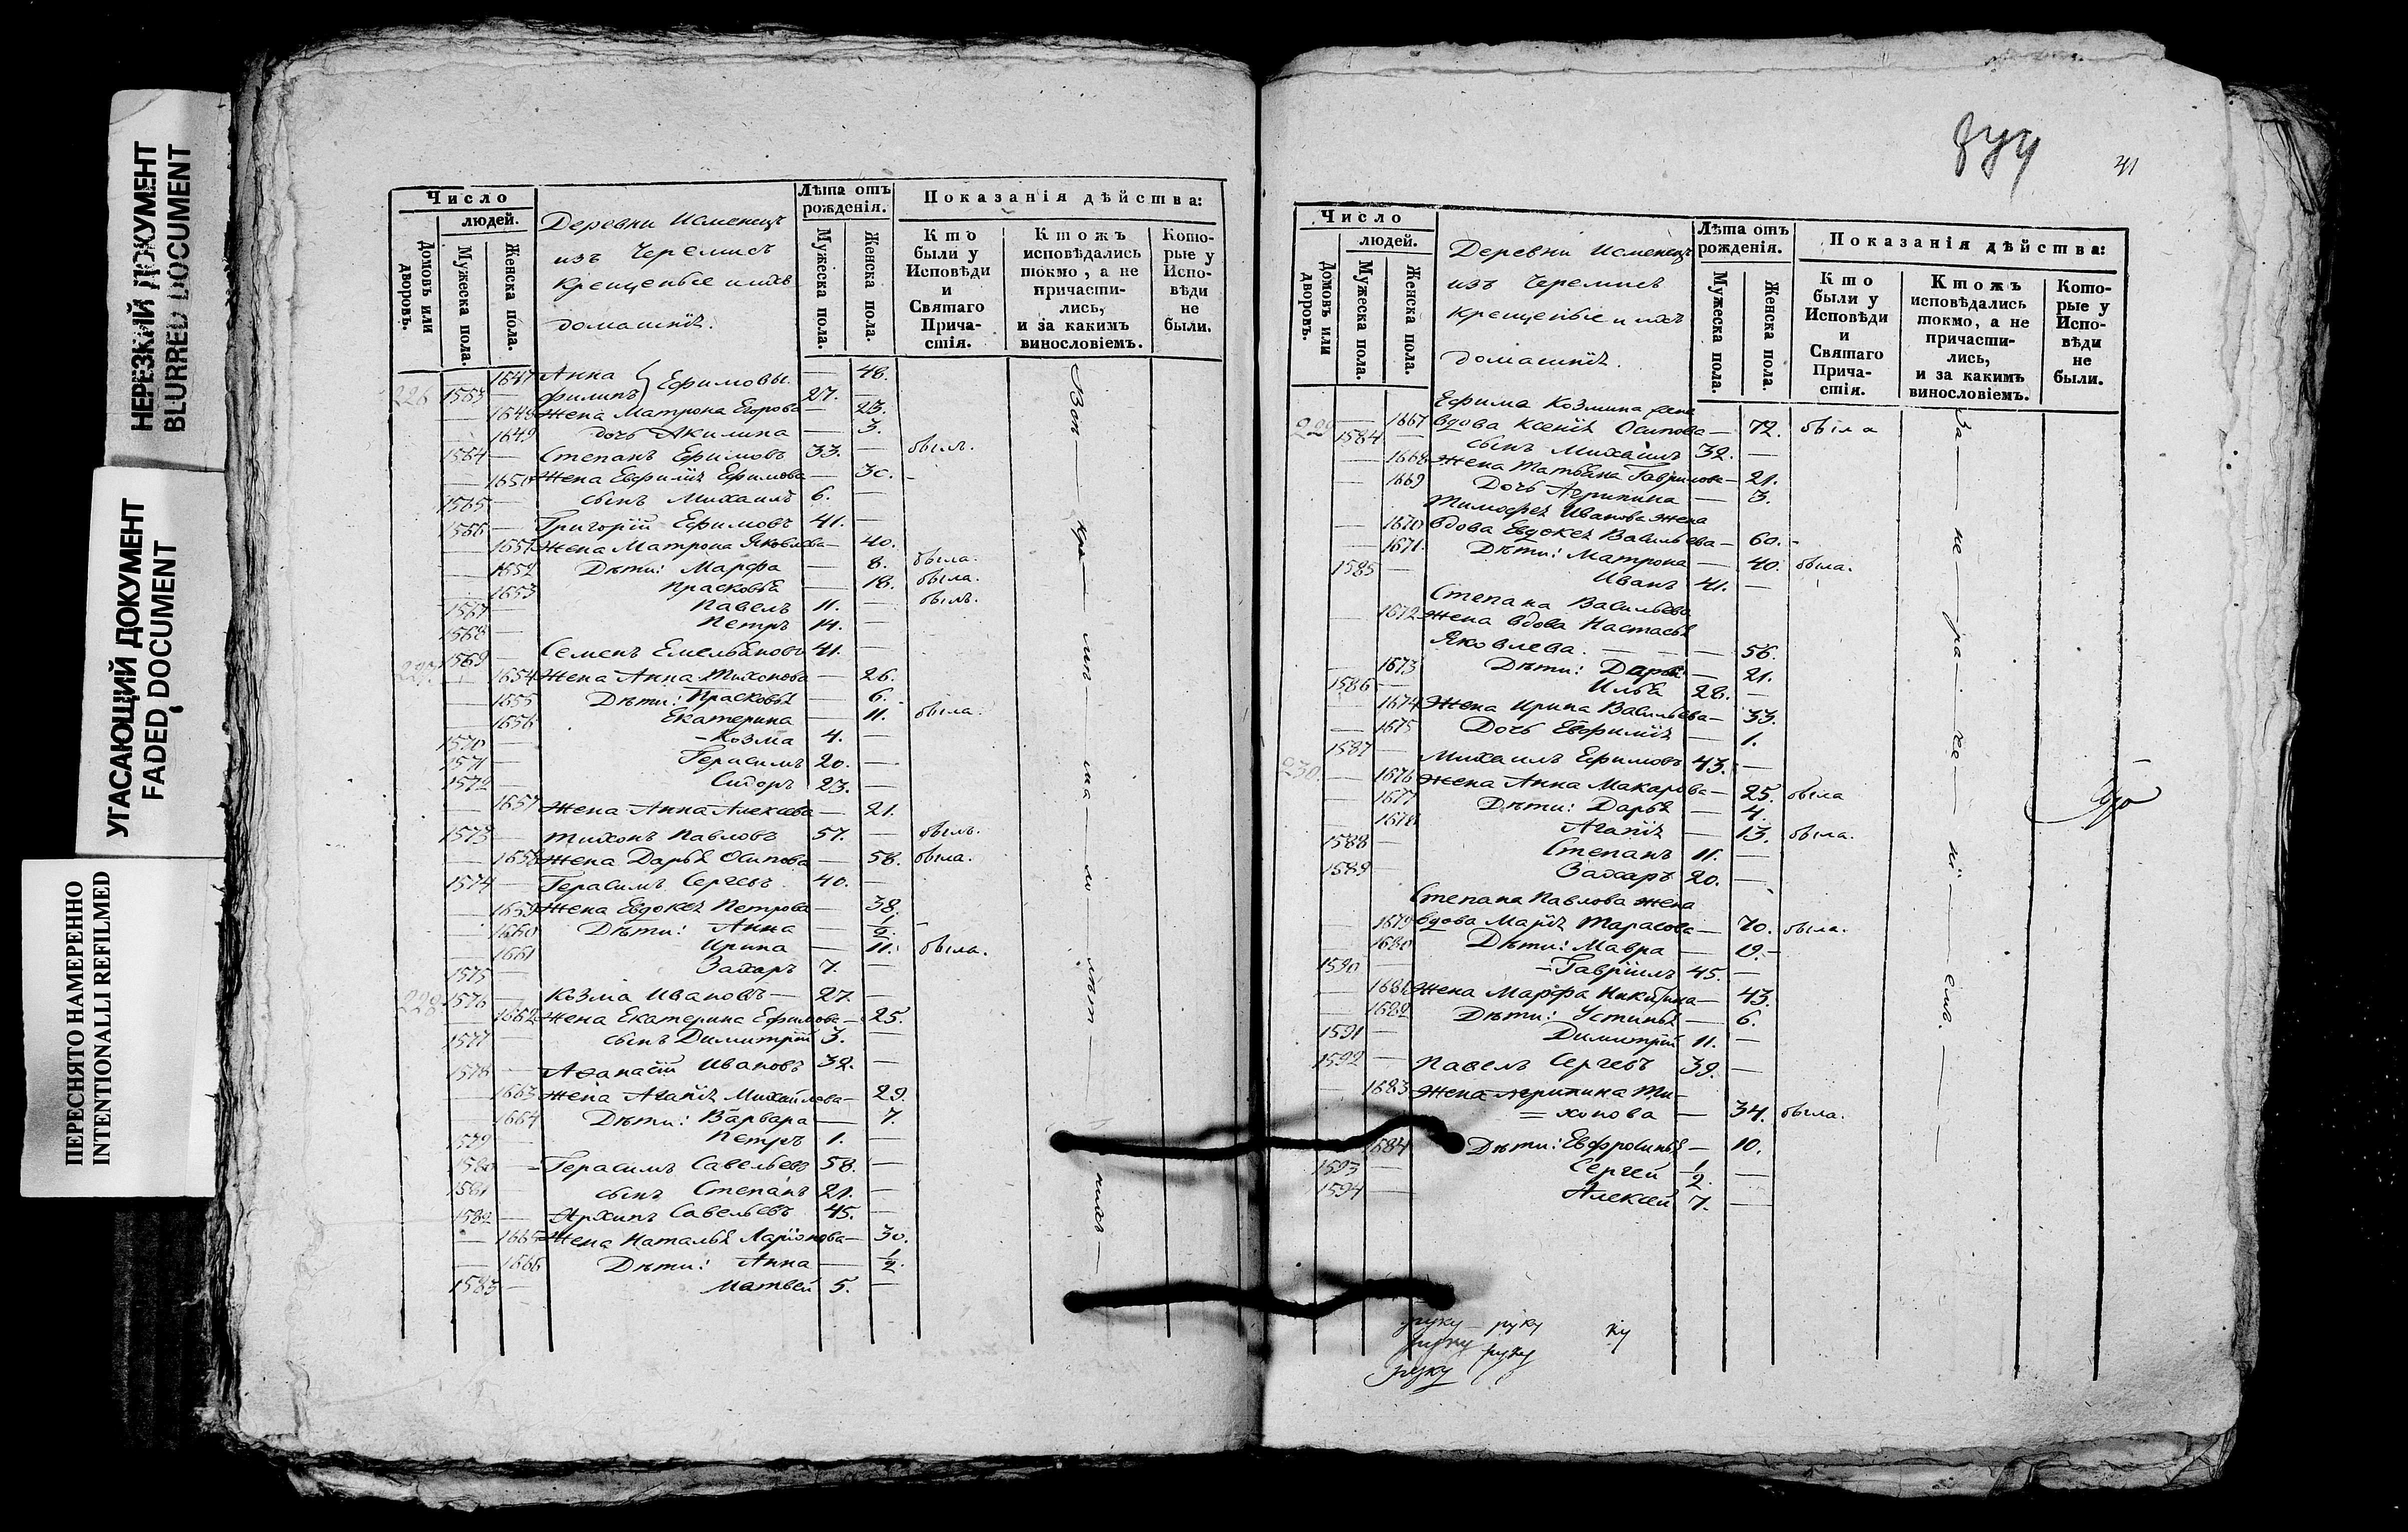 НЕРЕЗКИЙ ДОКУМЕНТ
BLURRED DOCUMENT
УГАСАЮЩИЙ ДОКУМЕНТ
FADED DOCUMENT
ПЕРЕСНЯТО НАМЕРЕННО
INTENTIONALLI REFILMED
Число
людей.
Домовъ или дворовъ.
Мужеска пола.
Женска пола.
Деревни Исменецъ
изъ Черемисъ
крещеные и ихъ
домашніе.
Лѣта отъ рожденія.
Мужеска пола.
Женска пола.
Показанія дѣйства:
Кто были у Исповѣди и Святаго Причастія.
Ктожъ исповѣдались токмо, а не причастились, и за какимъ винословіемъ.
Которые у Исповѣди не были.
1647 Анна Ефимовы. — 48.
226 1563 — Филипъ 27. —
— 1648 Жена Матрона Егорова — 23.
— 1649 дочь Акилина — 3.
1564 — Степанъ Ефимовъ 33. — былъ.
— 1650 Жена Евфимія Ефимова — 30.
1565 — сынъ Михаилъ 6. —
1566 — Григорій Ефимовъ 41. —
— 1651 Жена Матрона Яковлева — 40.
— 1652 Дѣти: Марфа — 8. была.
— 1653 Прасковья — 18. была.
1567 — Павелъ 11. — былъ.
1568 — Петръ 14. —
227 1569 — Семенъ Емельяновъ 41. —
— 1654 Жена Анна Тихонова — 26.
— 1655 Дѣти: Прасковья — 6.
— 1656 Екатерина — 11. была.
1570 — Козма 4. —
1571 — Герасимъ 20. —
1572 — Сидоръ 23. —
— 1657 Жена Анна Алексѣева — 21.
1573 — Тихонъ Павловъ 57. — былъ.
— 1658 Жена Дарья Осипова — 58. была.
1574 — Герасимъ Сергѣевъ 40. —
— 1659 Жена Евдокея Петрова — 38.
— 1660 Дѣти: Анна — 1/2.
— 1661 Ирина — 11. была.
1575 — Захаръ 7. —
228 1576 — Козма Ивановъ — 27. —
— 1662 Жена Екатерина Ефимова — 25.
1577 — сынъ Димитрій 3. —
1578 — Аѳанасій Ивановъ 32. —
— 1663 Жена Агапія Михайлова — 29.
— 1664 Дѣти: Варвара — 7.
1579 — Петръ 1. —
1580 — Герасимъ Савельевъ 58. —
1581 — сынъ Степанъ 21. —
1582 — Архипъ Савельевъ 45. —
— 1665 Жена Наталья Ларіонова — 30.
— 1666 Дѣти: Анна — 1/2.
1583 — Матвей 5. —
41
Число
людей.
Домовъ или дворовъ.
Мужеска пола.
Женска пола.
Деревни Исменецъ
изъ Черемисъ
крещеные и ихъ
домашніе.
Лѣта отъ рожденія.
Мужеска пола.
Женска пола.
Показанія дѣйства:
Кто были у Исповѣди и Святаго Причастія.
Ктожъ исповѣдались токмо, а не причастились, и за какимъ винословіемъ.
Которые у Исповѣди не были.
Ефима Козмина жена
229 — 1667 вдова Ксенія Осипова — 72. была
1584 — сынъ Михаилъ 32. —
— 1668 Жена Татьяна Гаврилова — 21.
— 1669 Дочь Агрипина — 3.
Тимофея Иванова жена
— 1670 вдова Евдокея Васильева — 60.
— 1671 Дѣти: Матрона — 40. была.
1585 — Иванъ 41. —
Степана Васильева
— 1672 Жена вдова Настасья
Яковлева. — — 56.
— 1673 Дѣти: Дарья — 21.
1586 — Илья 28. —
— 1674 Жена Ирина Васильева — 33.
— 1675 Дочь Евфимія — 1.
230. 1587 — Михаилъ Ефимовъ 43. —
— 1676 Жена Анна Макарова — 25. была
— 1677 Дѣти: Дарья — 4.
— 1678 Агапія — 13. была.
1588 — Степанъ 11. —
1589 — Захаръ 20. —
Степана Павлова жена
— 1679 вдова Марія Тарасова — 70. была.
— 1680 Дѣти: Мавра — 9.
1590 — Гавріилъ 45. —
— 1681 Жена Марфа Никитина — 43.
— 1682 Дѣти: Устинья — 6.
1591 — Димитрій 11. —
1592 — Павелъ Сергѣевъ 39. —
— 1683 Жена Агрипина Ти-
=хонова — 34. была.
— 1684 Дѣти: Евфросинья — 10.
1593 — Сергей 1/2. —
1594 — Алексѣй 7. —
За — не — ра — че — ні — емъ.
руку руку ку
руку руку
руку